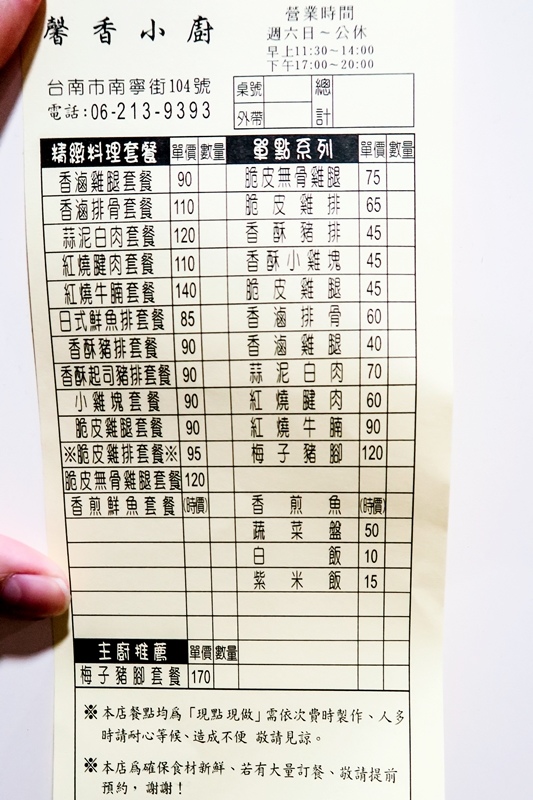 馨香小廚
營業時間
週六日～公休
早上11:30～14:00
下午17:00～20:00
台南市南寧街104號
電話:06-213-9393
桌號 總計
外帶
精緻料理套餐 單價 數量
香滷雞腿套餐 90
香滷排骨套餐 110
蒜泥白肉套餐 120
紅燒腱肉套餐 110
紅燒牛腩套餐 140
日式鮮魚排套餐 85
香酥豬排套餐 90
香酥起司豬排套餐 90
小雞塊套餐 90
脆皮雞腿套餐 90
※脆皮雞排套餐※ 95
脆皮無骨雞腿套餐 120
香煎鮮魚套餐 (時價)
主廚推薦 單價 數量
梅子豬腳套餐 170
單點系列 單價 數量
脆皮無骨雞腿 75
脆皮雞排 65
香酥豬排 45
香酥小雞塊 45
脆皮雞腿 45
香滷排骨 60
香滷雞腿 40
蒜泥白肉 70
紅燒腱肉 60
紅燒牛腩 90
梅子豬腳 120
香煎魚 (時價)
蔬菜盤 50
白飯 10
紫米飯 15
※本店餐點均為「現點現做」需依次費時製作、人多
時請耐心等候、造成不便 敬請見諒。
※本店為確保食材新鮮、若有大量訂餐、敬請提前
預約，謝謝！